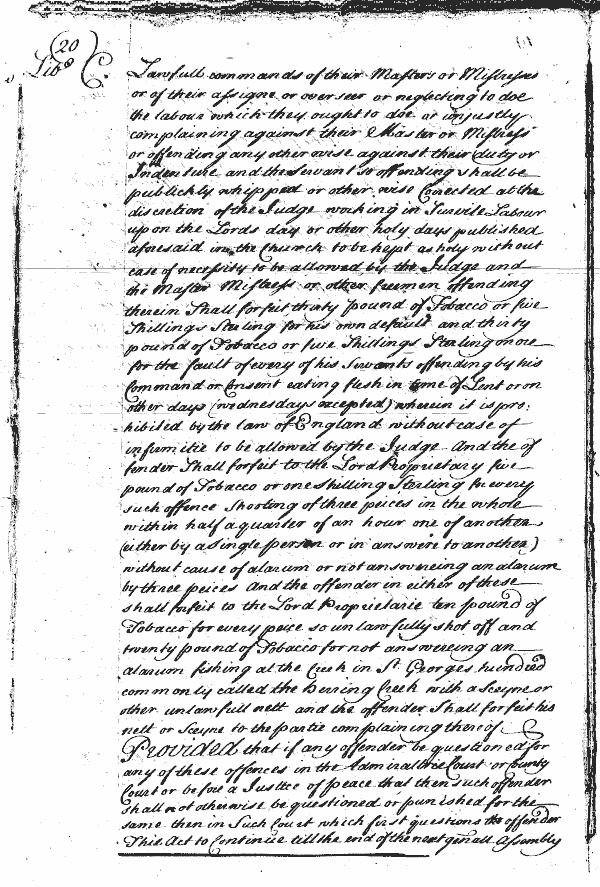 (20)
Lib° C.
Lawfull commands of their Masters or Mistresses
or of their assigne or overseer or neglecting to doe
the labour which they ought to doe or unjustly
complaining against their Master or Mistress
or offending any other wise against their duty or
Indenture and the servant so offending shall be
publickly whipped or other wise Corected at the
discretion of the Judge working in Survile Labour
upon the Lords day or other holy days published
aforesaid in the Church to be kept as holy without
case of necessity to be allowed by the Judge and
the Master Mistress or other freemen offending
therein Shall forfeit thirty pound of Tobacco or five
Shillings Sterling for his own default and thirty
pound of Tobacco or five Shillings Sterling more
for the fault of every of his Servants offending by his
Command or Consent eating flesh in time of Lent or on
other days (wednesdays excepted) wherein it is pro:
hibited by the law of England without case of
infirmitie to be allowed by the Judge And the of
fender Shall forfeit to the Lord Proprietary five
pound of Tobacco or one Shilling Sterling for every
such offence Shooting of three peices in the whole
within half a quarter of an hour one of another
(either by a Single person or in answere to another)
without cause of alarum or not answereing an alarum
by three peices And the offender in either of these
shall forfeit to the Lord Proprietarie ten pound of
Tobacco for every peice so unlawfully shot off and
twenty pound of Tobacco for not answereing an
alarum fishing at the Creek in St. Georges hundred
commonly called the Herring Creek with a Sceyne or
other unlawfull nett and the offender Shall forfeit his
nett or Sceyne to the partie complaining thereof
Provided that if any offender be questioned for
any of these offences in the Admiralties Court or County
Court or before a Justice of peace that then such offender
shall not otherwise be questioned or punished for the
same then in Such Court which first questions the offender
This Act to Continue till the end of the next genall Assembly